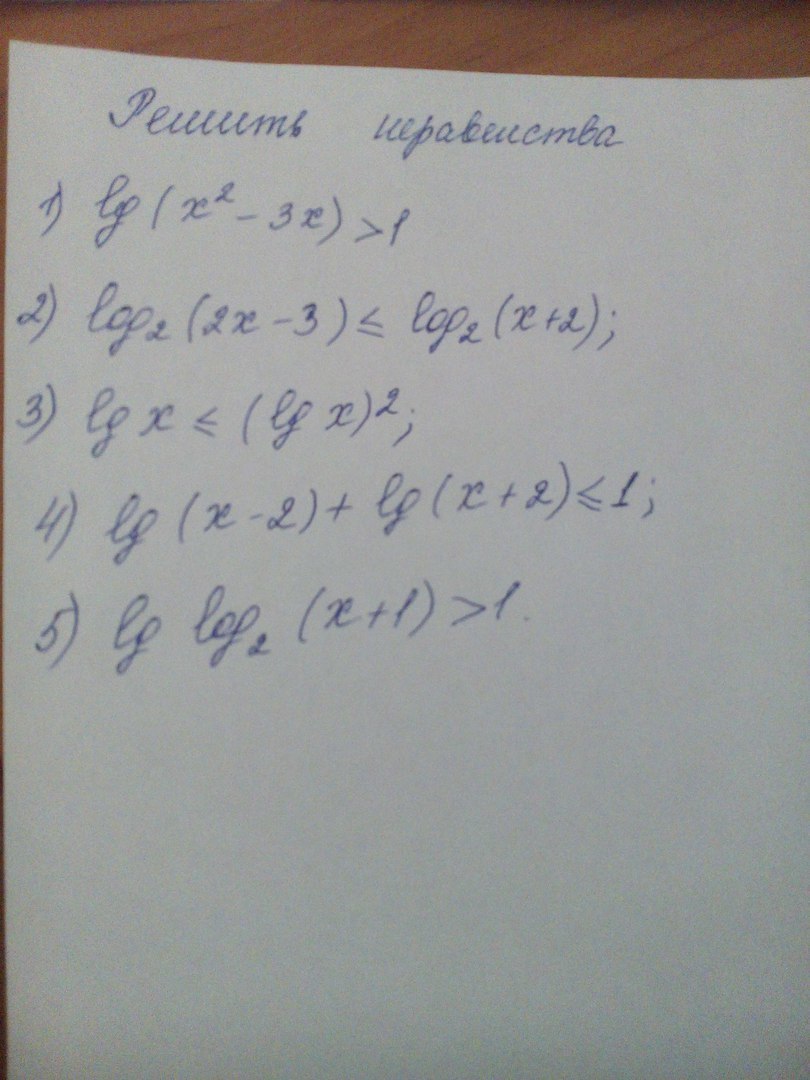 Решить неравенства
1) lg (x² - 3x) > 1
2) log₂ (2x - 3) ≤ log₂ (x+2);
3) lg x ≤ (lg x)²;
4) lg (x - 2) + lg (x + 2) ≤ 1;
5) lg log₂ (x+1) > 1.